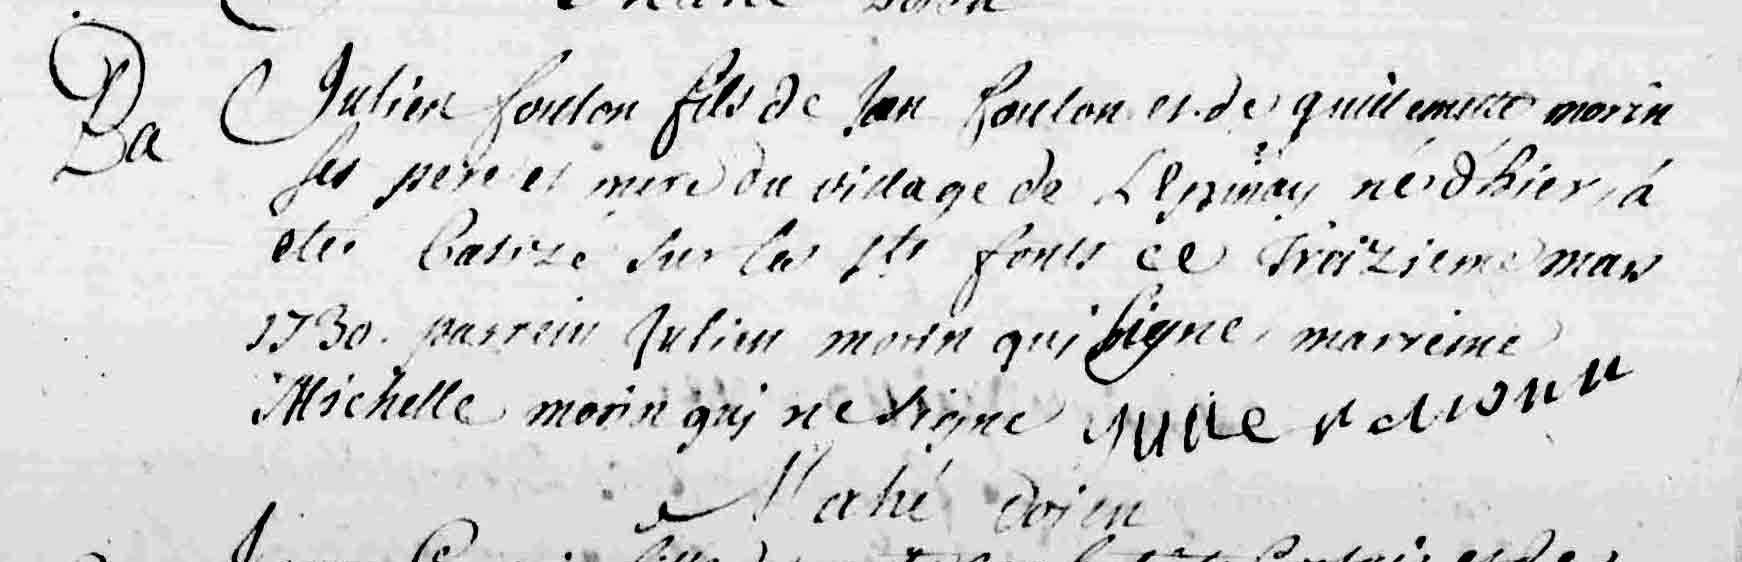 doien
Ba Julien foulon fils de Jan foulon et de guillemette morin
ses pere et mere du village de Lespinay né d'hier, à
eté batizé sur les sts fonts ce troizieme mars
1730. parrein Julien morin qui signe, marreine
Michelle morin qui ne signe
Mahé doien